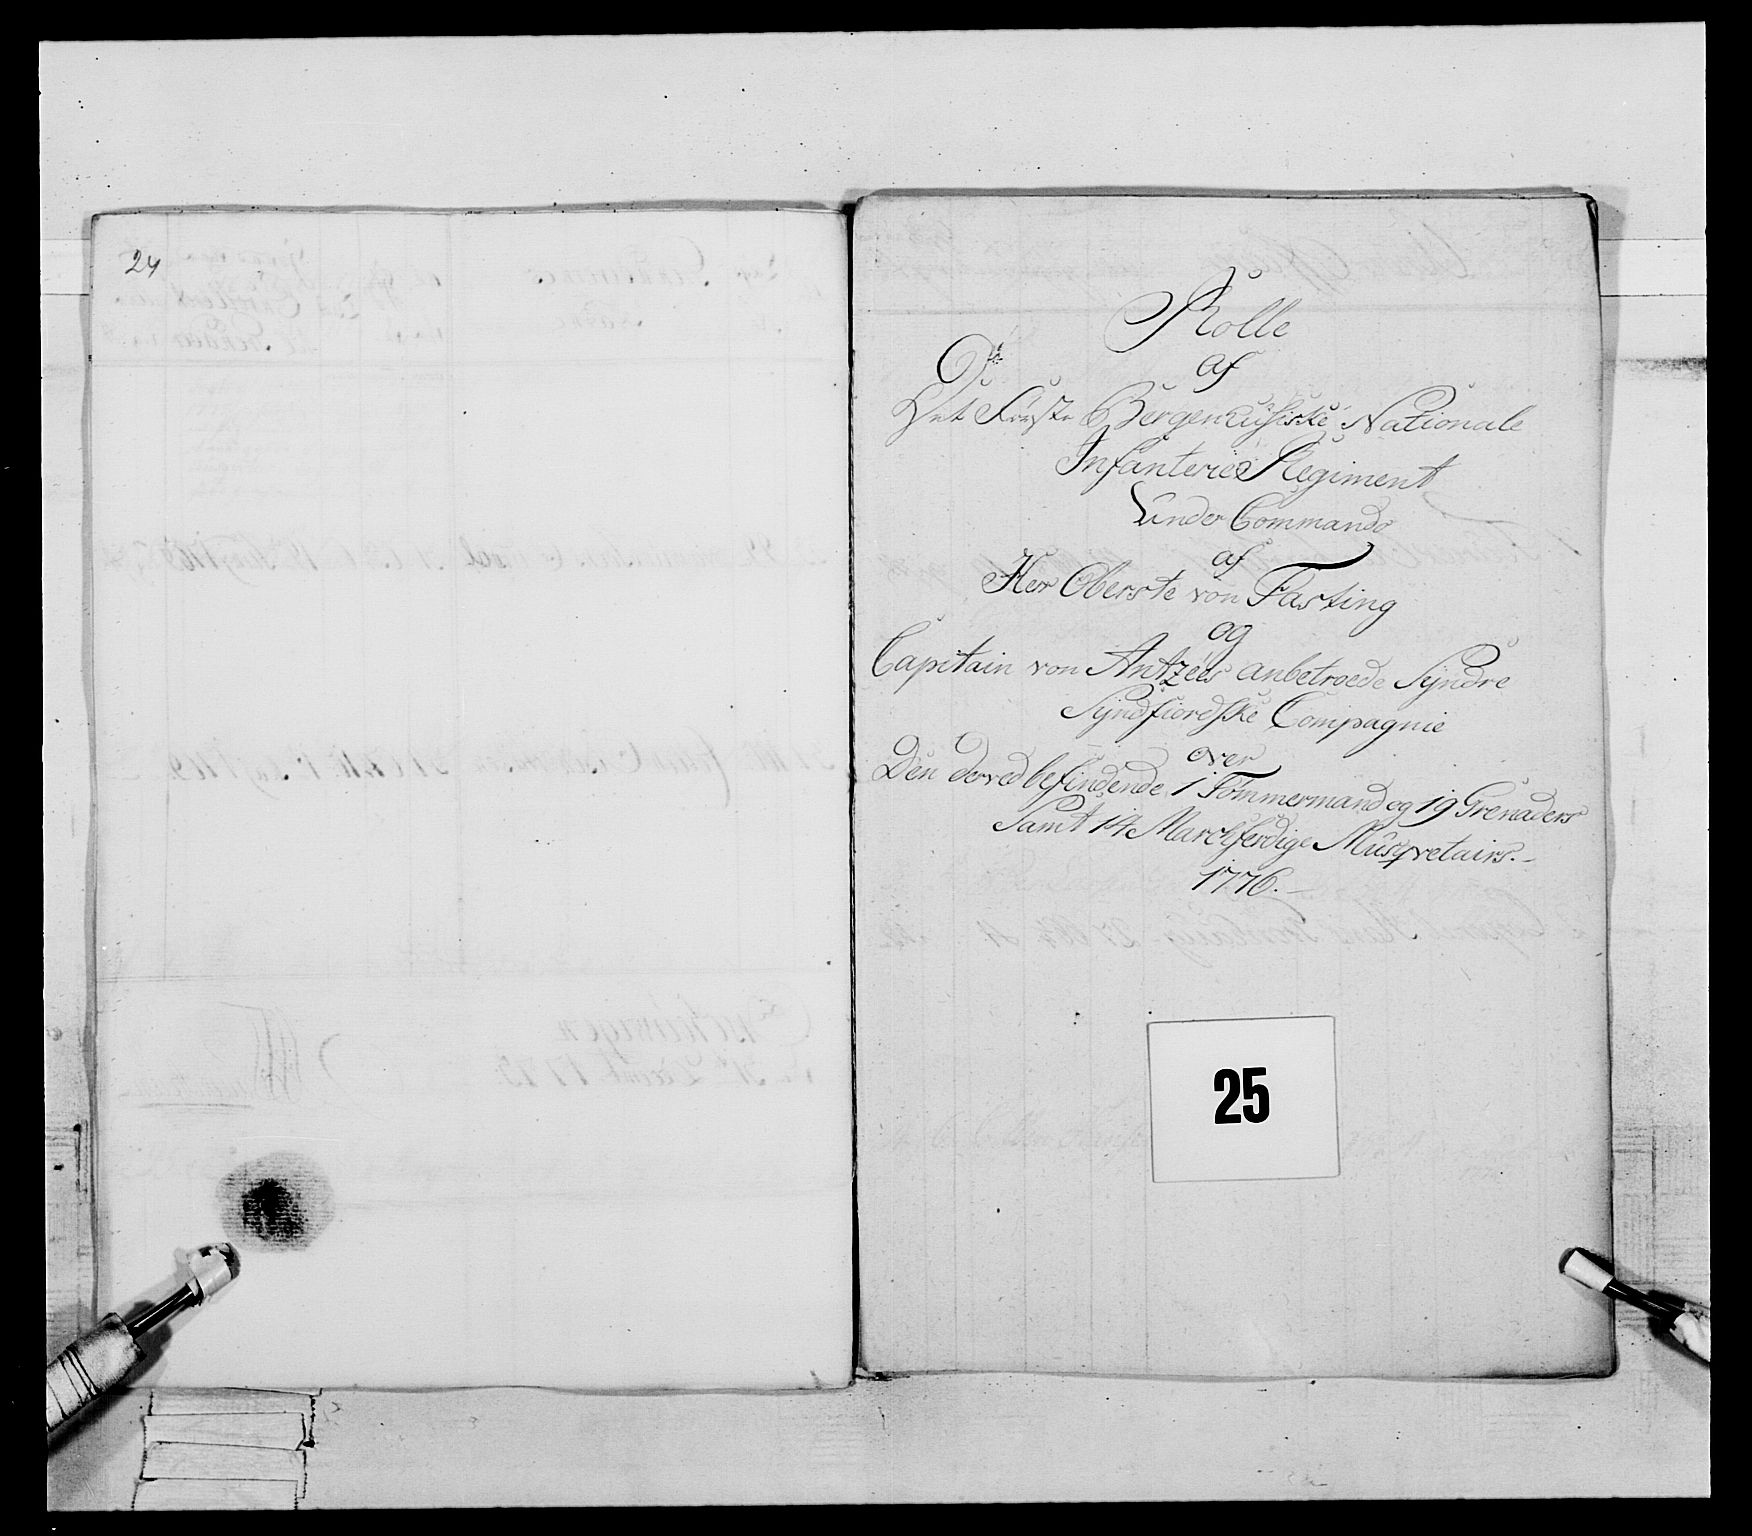 24
Rolle
af
Det Første Bergenhusiske Nationale
Infanterie Regiment
Under Commando
af
Herr Oberste von Fasting
og
Capitain von Antzées anbetroede Syndre
Syndfiordske Compagnie
over
Den derved befindende 1 Tømmermand og 19 Grenaders
Samt 14 Marchferdige Musqvetairs.
1776.
25